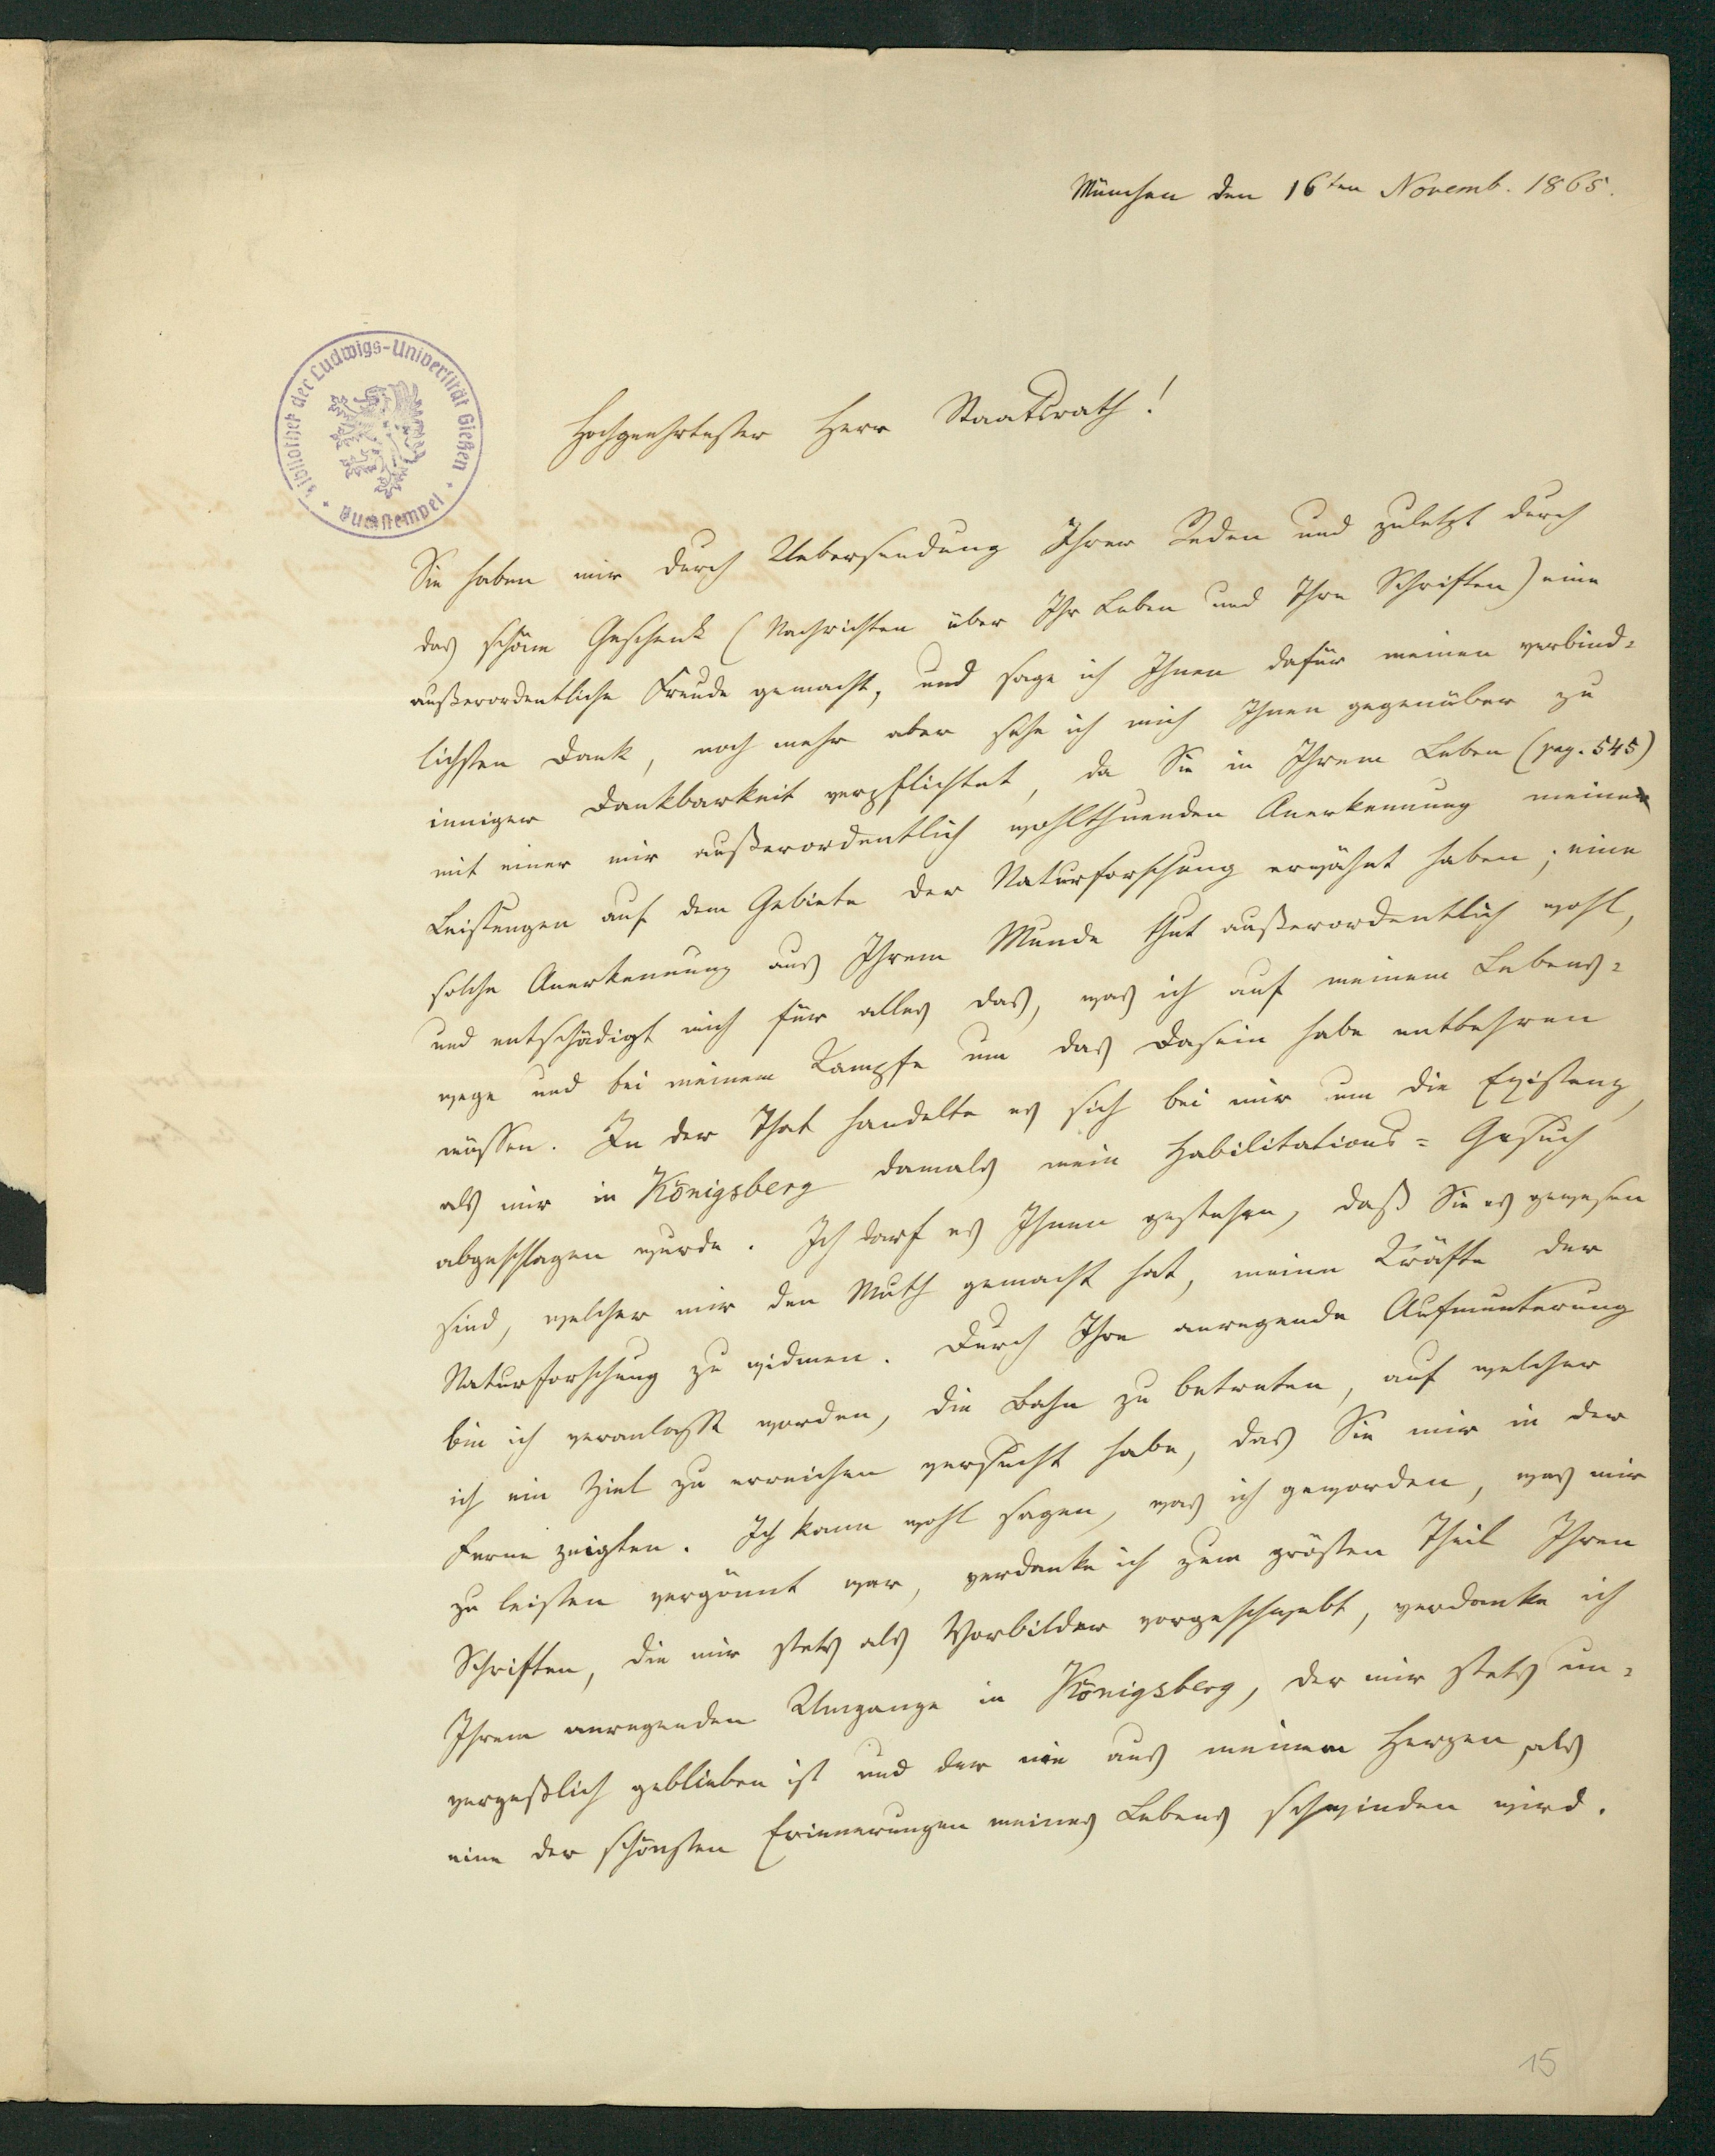 München den 16ten Novemb. 1865.
Bibliothek der Ludwigs-Universität Gießen
Buchstempel
Hochgeehrtester Herr Staatsrath!
Sie haben mir durch Uebersendung Ihrer Reden und zuletzt durch
das schöne Geschenk (Nachrichten über Ihr Leben und Ihre Schriften) eine
außerordentliche Freude gemacht, und sage ich Ihnen dafür meinen verbind=
lichsten Dank, noch mehr aber sehe ich mich Ihnen gegenüber zu
inniger Dankbarkeit verpflichtet, da Sie in Ihrem Leben (pag. 545)
mit einer mir außerordentlich wohlthuenden Anerkennung meiner
Leistungen auf dem Gebiete der Naturforschung erwähnt haben; eine
solche Anerkennung aus Ihrem Munde thut außerordentlich wohl,
und entschädigt mich für alles das, was ich auf meinem Lebens=
wege und bei meinem Kampfe um das Dasein habe entbehren
müssen. In der That handelte es sich bei mir um die Existenz,
als mir in Königsberg damals mein Habilitations=Gesuch
abgeschlagen wurde. Ich darf es Ihnen gestehen, daß Sie es gewesen
sind, welcher mir den Muth gemacht hat, meine Kräfte der
Naturforschung zu widmen. Durch Ihre anregende Aufmunterung
bin ich veranlaßt worden, die Bahn zu betreten, auf welcher
ich ein Ziel zu erreichen versucht habe, das Sie mir in der
Ferne zeigten. Ich kann wohl sagen, was ich geworden, was mir
zu leisten vergönnt war, verdanke ich zum größten Theil Ihren
Schriften, die mir stets als Vorbilder vorgeschwebt, verdanke ich
Ihrem anregenden Umgange in Königsberg, der mir stets un=
vergeßlich geblieben ist und der nie aus meinem Herzen als
eine der schönsten Erinnerungen meines Lebens schwinden wird.
15